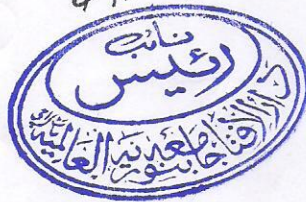 نائب
رئیس
دار الافتا جامعه بنوریه العالمیة